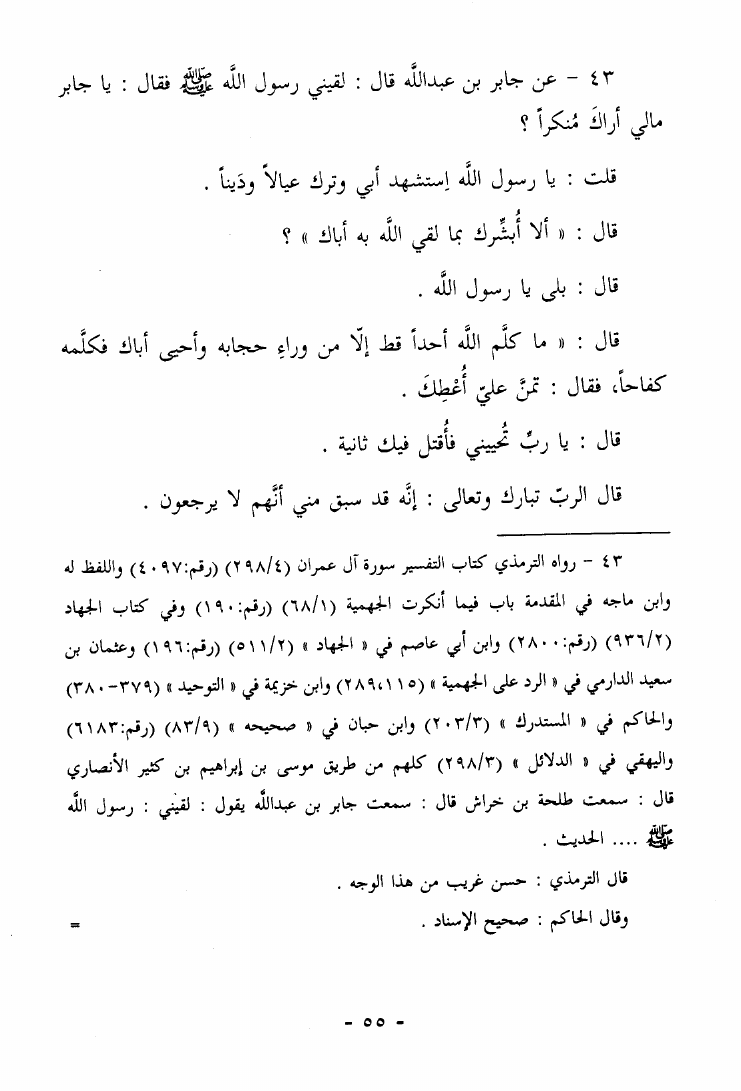 ٤٣ - عن جابر بن عبداللَّه قال : لقيني رسول اللَّه ﷺ فقال : يا جابر
مالي أراكَ مُنكراً ؟
قلت : يا رسول اللَّه اِستشهد أبي وترك عيالاً ودَيناً .
قال : « ألا أُبشِّرك بما لقي اللَّه به أباك » ؟
قال : بلى يا رسول اللَّه .
قال : « ما كلَّم اللَّه أحداً قط إلّا من وراءِ حجابه وأحيى أباك فكلَّمه
كفاحاً، فقال : تمنَّ عليّ أُعْطِكَ .
قال : يا ربِّ تُحييني فأُقتل فيك ثانية .
قال الربّ تبارك وتعالى : إنَّه قد سبق مني أنَّهم لا يرجعون .
٤٣ - رواه الترمذي كتاب التفسير سورة آل عمران (٢٩٨/٤) (رقم:٤٠٩٧) واللفظ له
وابن ماجه في المقدمة باب فيما أنكرت الجهمية (٦٨/١) (رقم:١٩٠) وفي كتاب الجهاد
(٩٣٦/٢) (رقم:٢٨٠٠) وابن أبي عاصم في « الجهاد » (٥١١/٢) (رقم:١٩٦) وعثمان بن
سعيد الدارمي في « الرد على الجهمية » (٢٨٩،١١٥) وابن خزيمة في « التوحيد » (٣٧٩-٣٨٠)
والحاكم في « المستدرك » (٢٠٣/٣) وابن حبان في « صحيحه » (٨٣/٩) (رقم:٦١٨٣)
والبهقي في « الدلائل » (٢٩٨/٣) كلهم من طريق موسى بن إبراهيم بن كثير الأنصاري
قال : سمعت طلحة بن خراش قال : سمعت جابر بن عبداللَّه يقول : لقيني : رسول اللَّه
ﷺ .... الحديث .
قال الترمذي : حسن غريب من هذا الوجه .
وقال الحاكم : صحيح الإسناد .
=
- ٥٥ -